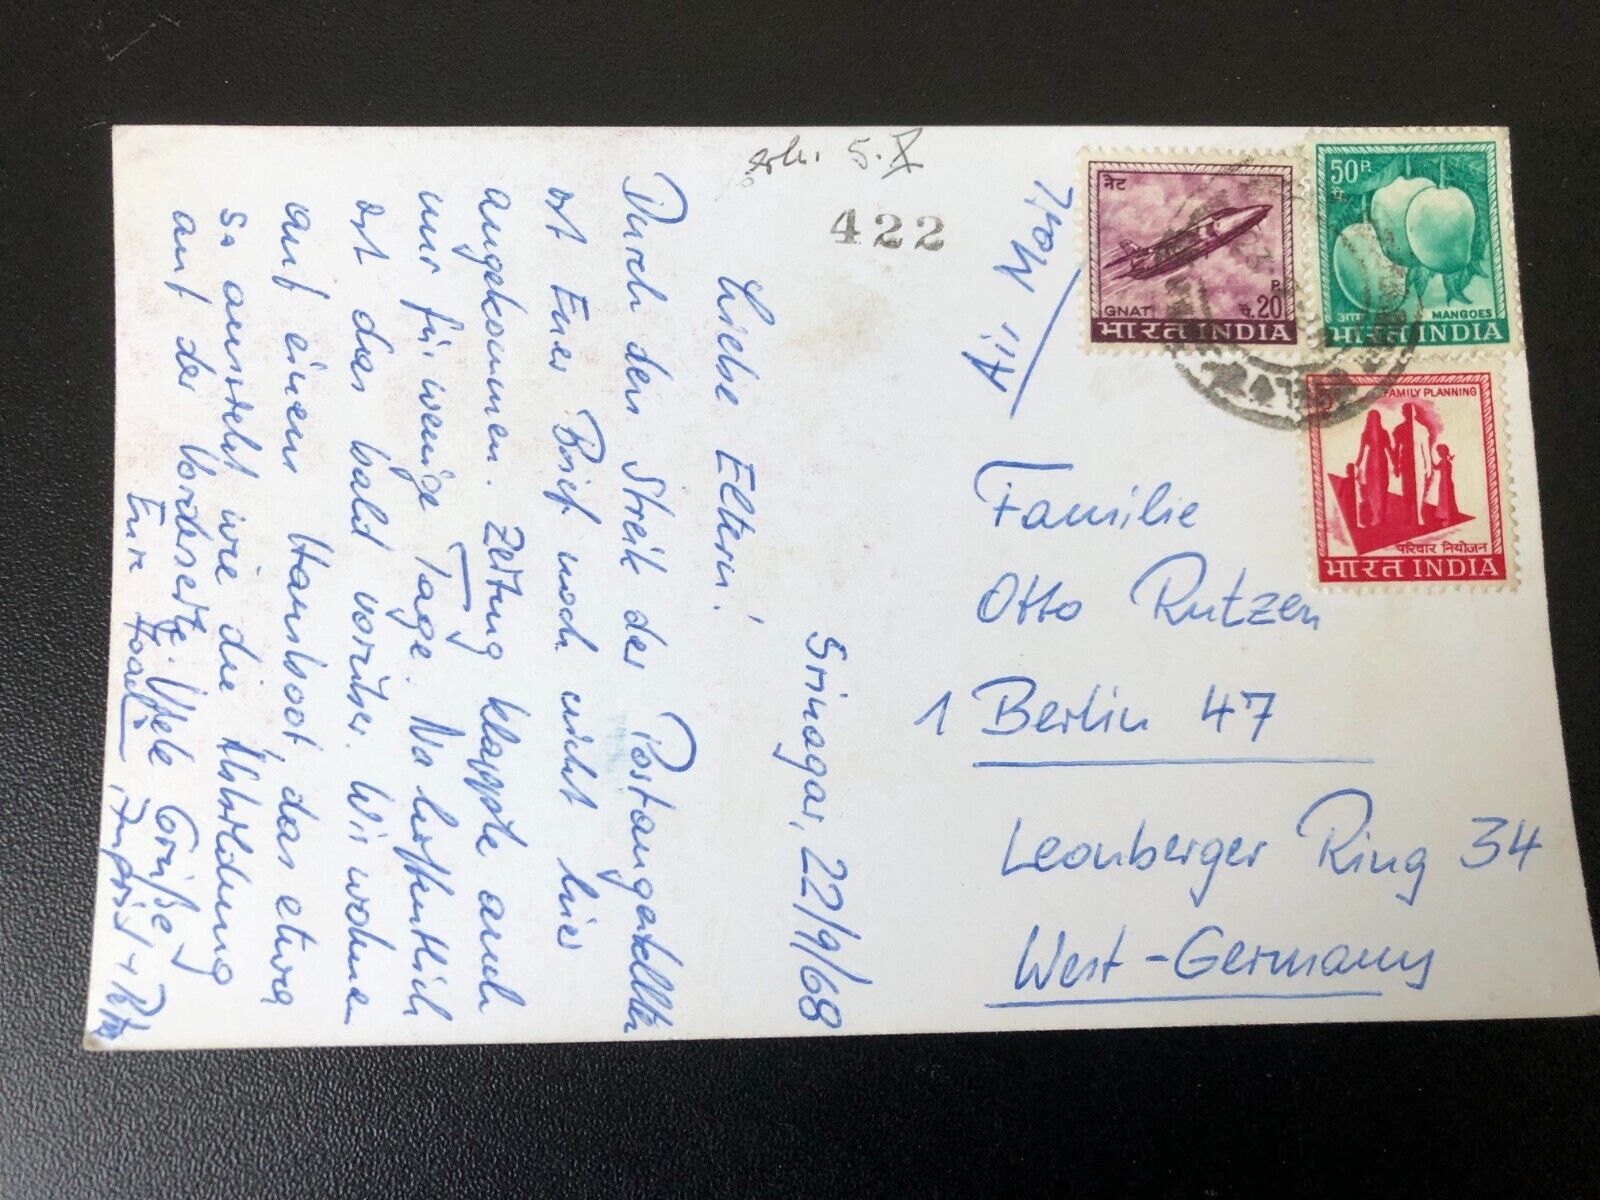 erh. 5. X
422
Srinagar, 22/9/68
Liebe Eltern!
Durch den Streik der Postangestellten
ist Euer Brief noch nicht hier
angekommen. Zeitung klappte auch
nur für wenige Tage. Na hoffentlich
ist das bald vorüber. Wir wohnen
auf einem Hausboot, das etwa
so aussieht wie die Abbildung
auf der Vorderseite. Viele Grüße
Eure
Air Mail
Familie
Otto Rutzen
1 Berlin 47
Leonberger Ring 34
West-Germany
नेट
GNAT
P.
पै. 20
भारत INDIA
50 P.
पै.
आम
MANGOES
भारत INDIA
5
FAMILY PLANNING
परिवार नियोजन
भारत INDIA